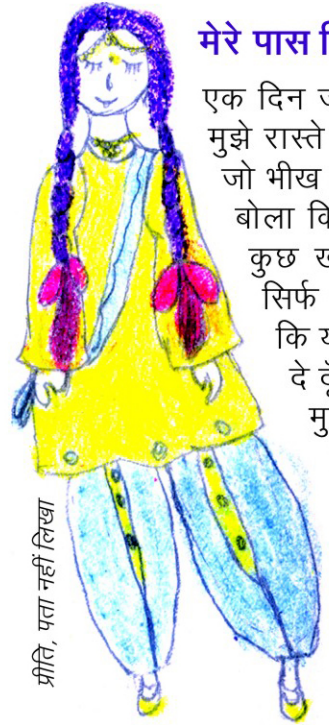 मेरे पास
एक दिन
मुझे रास्ते
जो भीख
बोला
कुछ
सिर्फ
कि
दे
प्रीति, पता नहीं लिखा